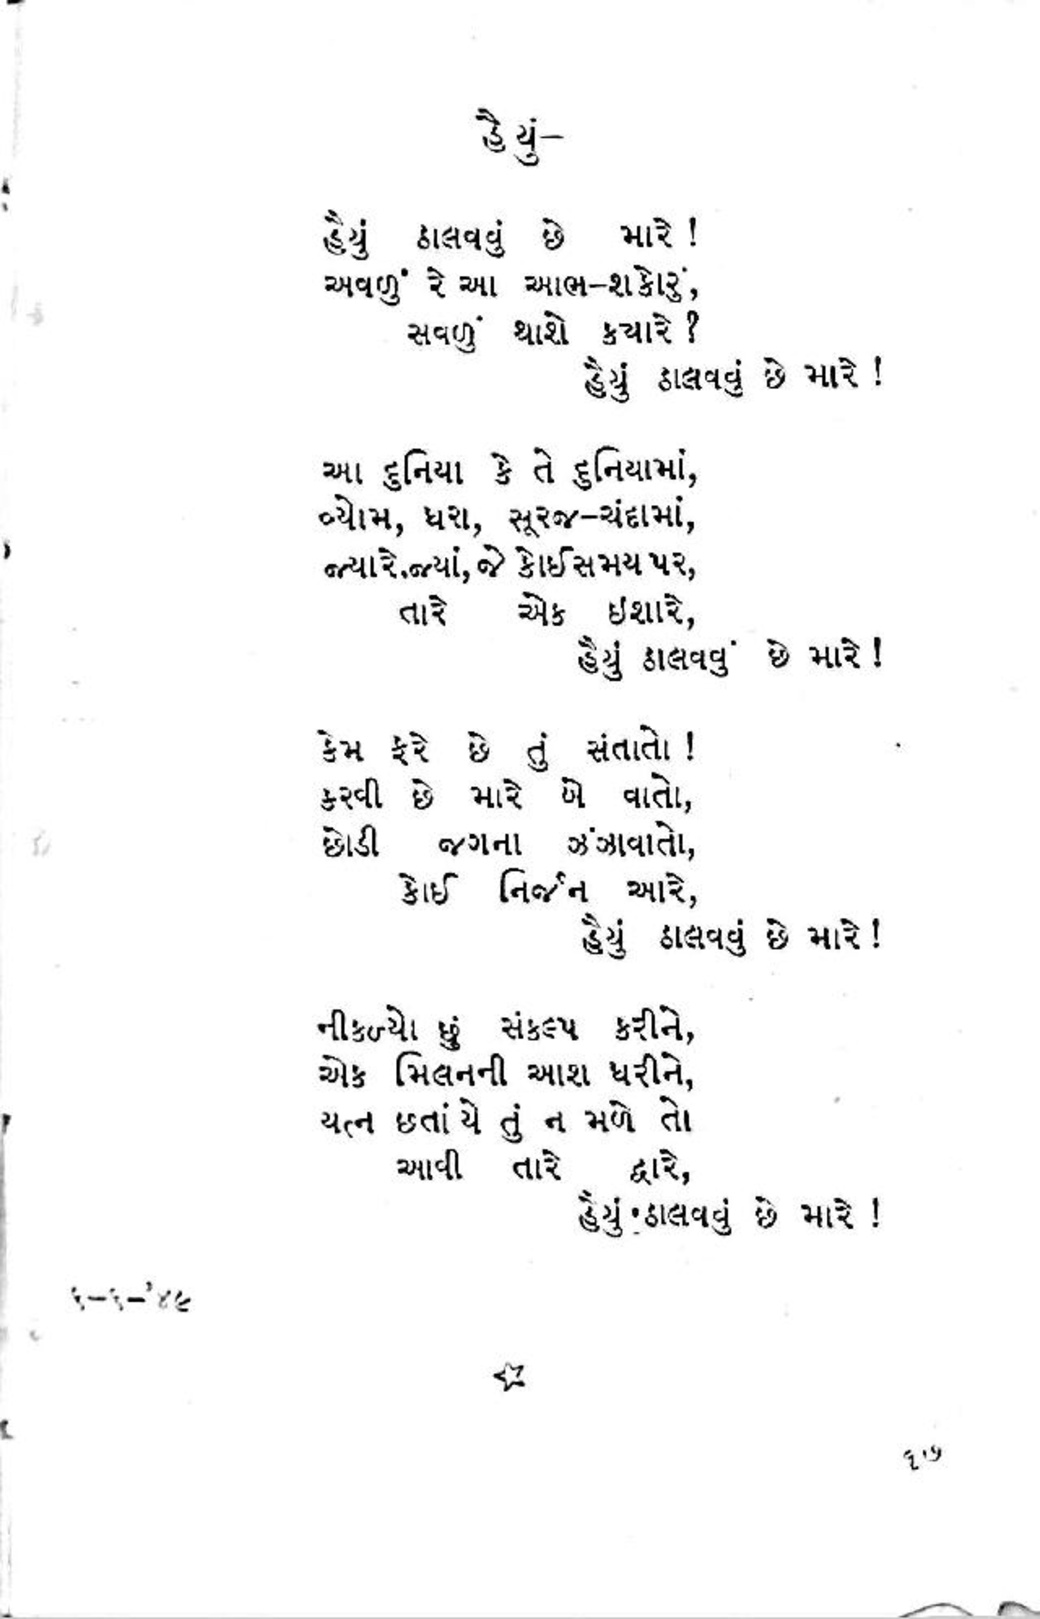 હૈયું–
હૈયું ઠાલવવું છે મારે !
અવળું રે આ આભ–શકોરું,
સવળું થાશે ક્યારે ?
હૈયું ઠાલવવું છે મારે !
આ દુનિયા કે તે દુનિયામાં,
વ્યોમ, ધરા, સૂરજ–ચંદામાં,
જ્યારે.જ્યાં, જે કોઈ સમય પર,
તારે એક ઇશારે,
હૈયું ઠાલવવું છે મારે !
કેમ ફરે છે તું સંતાતો !
કરવી છે મારે બે વાતો,
છોડી જગના ઝંઝાવાતો,
કોઈ નિર્જન આરે,
હૈયું ઠાલવવું છે મારે !
નીકળ્યો છું સંકલ્પ કરીને,
એક મિલનની આશ ધરીને,
યત્ન છતાં યે તું ન મળે તો
આવી તારે દ્વારે,
હૈયું ઠાલવવું છે મારે !
૬–૬–’૪૯
૬૫